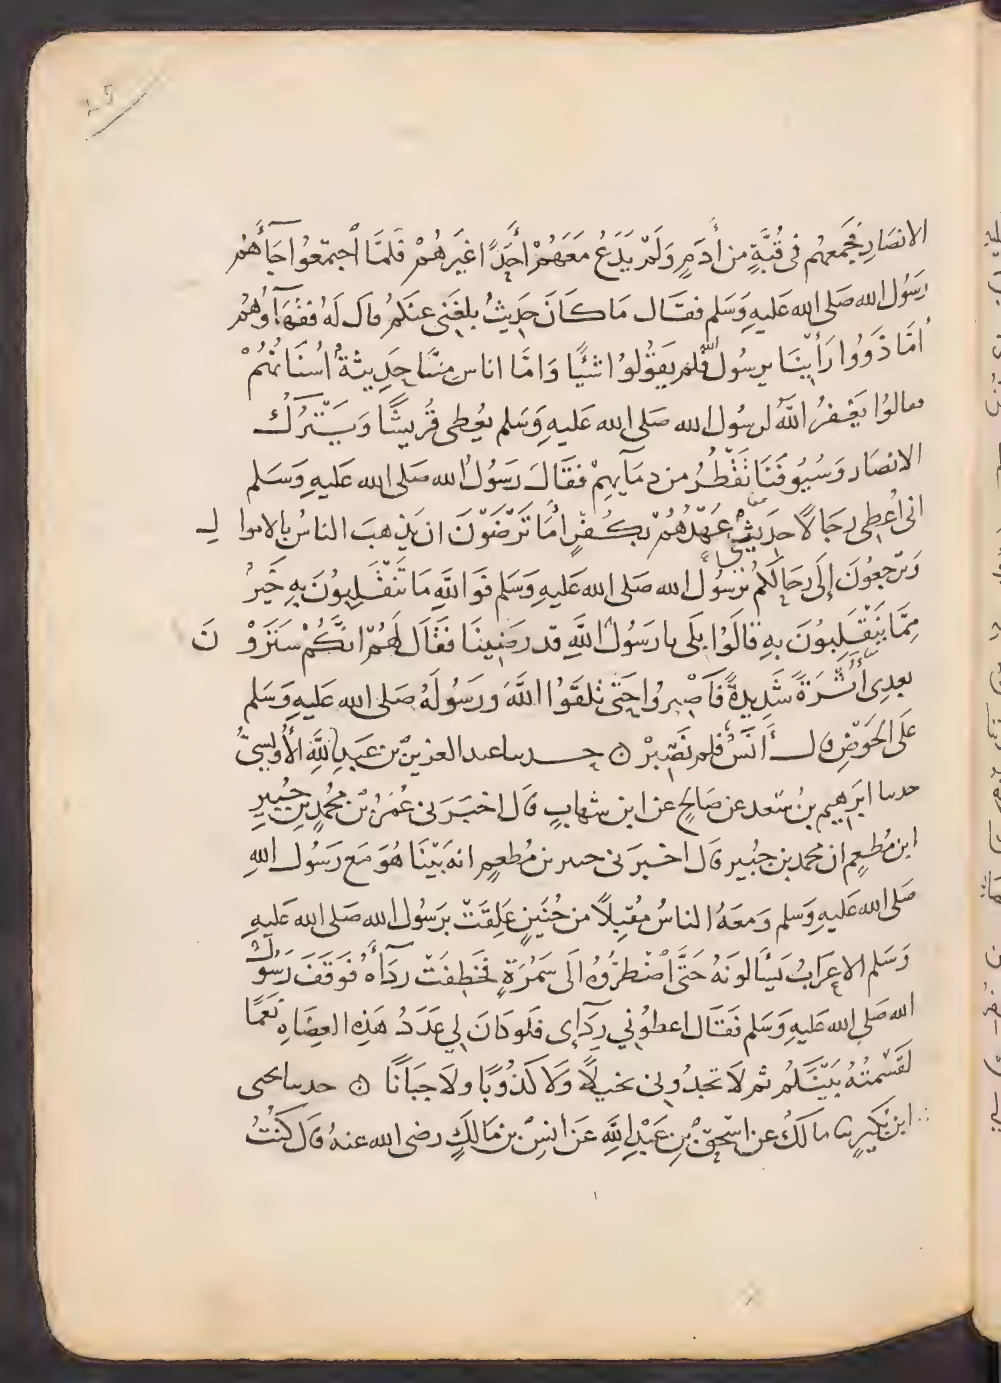 ٢٥
الانصَارِ فجَمعهُم فى قُبَّةٍ من أَدَمٍ وَلَمْ يَدَعُ مَعَهُمْ أَحَدًا غَيرَهُمْ فَلَمَّا ٱجتَمعُوا جَآءَهُمْ
رَسُول الله صَلى الله عَليهِ وَسَلم فقَال مَا كانَ حَدِيثٌ بلغَنى عنكمُ قال لَهُ فقهَآؤهُمْ
أَمَّا ذَوُوا رَأيِنَا يرسُول الله فلم يَقولُوا شيًا وَامَّا اناس مِنَّا حَدِيثةٌ اسْنَانُهُمْ
فقالوُا يَغْفرُ اللَّهُ لرسُول الله صَلى الله عَليهِ وَسَلم يُعطى قُرَيشًا وَيَتْرُكُ
الانصَار وَسُيُوفنَا تَقْطُرُ من دمَآيهِمْ فقَالَ رَسُولُ الله صَلى الله عَليهِ وَسَلم
انى اعُطِى رجَالاً حَدِيثٌ عَهْدُهُمْ بكُفْرٍ أَمَا تَرْضَوْنَ ان يَذهبَ الناسُ بالاموا لِ
وَترْجعُونَ إلَى رحَالكُم برَسُول الله صَلى الله عَليهِ وَسَلم فوَاللهِ مَا تَنْقَلِبُونَ بهِ خَيرٌ
مِمَّا يَنْقَلِبُونَ بهِ قالوُا بَلَى يا رَسُولَ اللَّهِ قد رَضِينَا فقَال لَهُمْ انكُمْ سَتَرَوْ نَ
بعدِى أَثَرَةً شَدِيدةً فَاصْبروُا حَتَّى تلقَوُا اللَّهَ وَرَسُولَهُ صَلى الله عَليهِ وَسَلم
عَلَى الحَوْضِ قال أَنَسٌ فلم نَصْبرْ ۞ حدثنا عبد العزيز بن عَبدِ اللَّهِ الأُوَيسىُّ
حدثنا ابرَهِيم بنُ سَعد عن صَالحٍ عن ابن شهابٍ قال اخبَرَنى عُمَرُ بْن محُمدٍ بن جُبيرِ
ابن مُطعِمٍ ان محمد بن جُبير قال اخبرَنى جبير بن مُطعِمٍ انهُ بَيْنَا هُوَ مَع رَسُول اللهِ
صَلى الله عَليهِ وَسَلم وَمعَهُ الناسُ مُقْبِلاً من حُنَينٍ عَلِقَتْ برَسُول الله صَلى الله عَليهِ
وَسَلم الاعرَابُ يَسْألونهُ حَتَّى ٱضْطرُّوهُ الَى سَمُرَةٍ فخَطِفتْ رِدَآءَهُ فوَقَفَ رَسُولُ
الله صَلى الله عَليهِ وَسَلم فقَال اعطُونِي رِدَآءِى فلو كانَ لِي عَدَدُ هَذِه العِضَاهِ نَعَمًا
لَقسَمتُهُ بَيْنَكُم ثم لَا تجدُونِى بخيلاً وَلَا كَذُوبًا ولَا جَبَانًا ۞ حدثنا يحيى
ابن بُكيرٍ ثنا مالكٌ عن اسْحٰقَ بْنِ عَبْدِ اللَّهِ عَن انسِ بن مَالكٍ رضى الله عنهُ قال كنْتُ